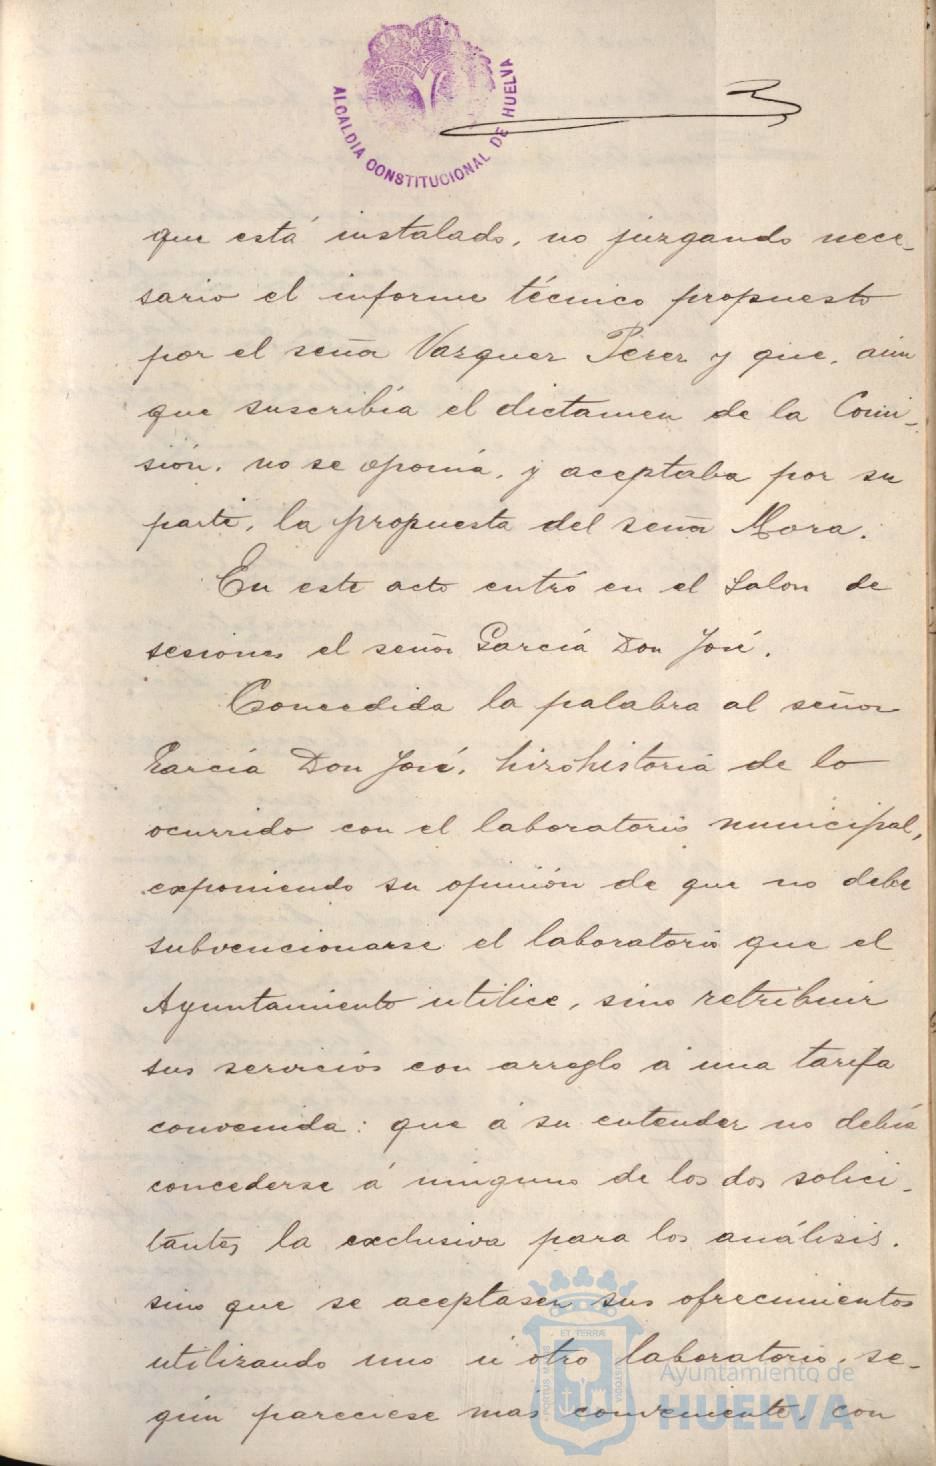 ALCALDIA CONSTITUCIONAL DE HUELVA
que está instalado, no juzgando nece-
sario el informe técnico propuesto
por el señor Vazquez Perez y que, aun
que suscribía el dictamen de la Comi-
sión, no se oponía, y aceptaba por su
parte, la propuesta del señor Mora.
En este acto entró en el Salon de
sesiones el señor García Don José.
Concedida la palabra al señor
García Don José, hizo historia de lo
ocurrido con el laboratorio municipal,
exponiendo su opinión de que no debe
subvencionarse el laboratorio que el
Ayuntamiento utilice, sino retribuir
sus servicios con arreglo á una tarifa
convenida: que á su entender no debía
concederse á ninguno de los dos solici-
tantes la exclusiva para los análisis.
sino que se aceptasen sus ofrecimientos
utilizando uno ú otro laboratorio, se-
gún pareciese más conveniente, con
ET TERRÆ
PORTUS MARIS
CUSTODIA
Ayuntamiento de
HUELVA